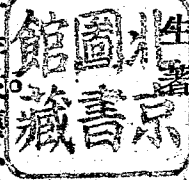 生著
北京
圖書
館藏